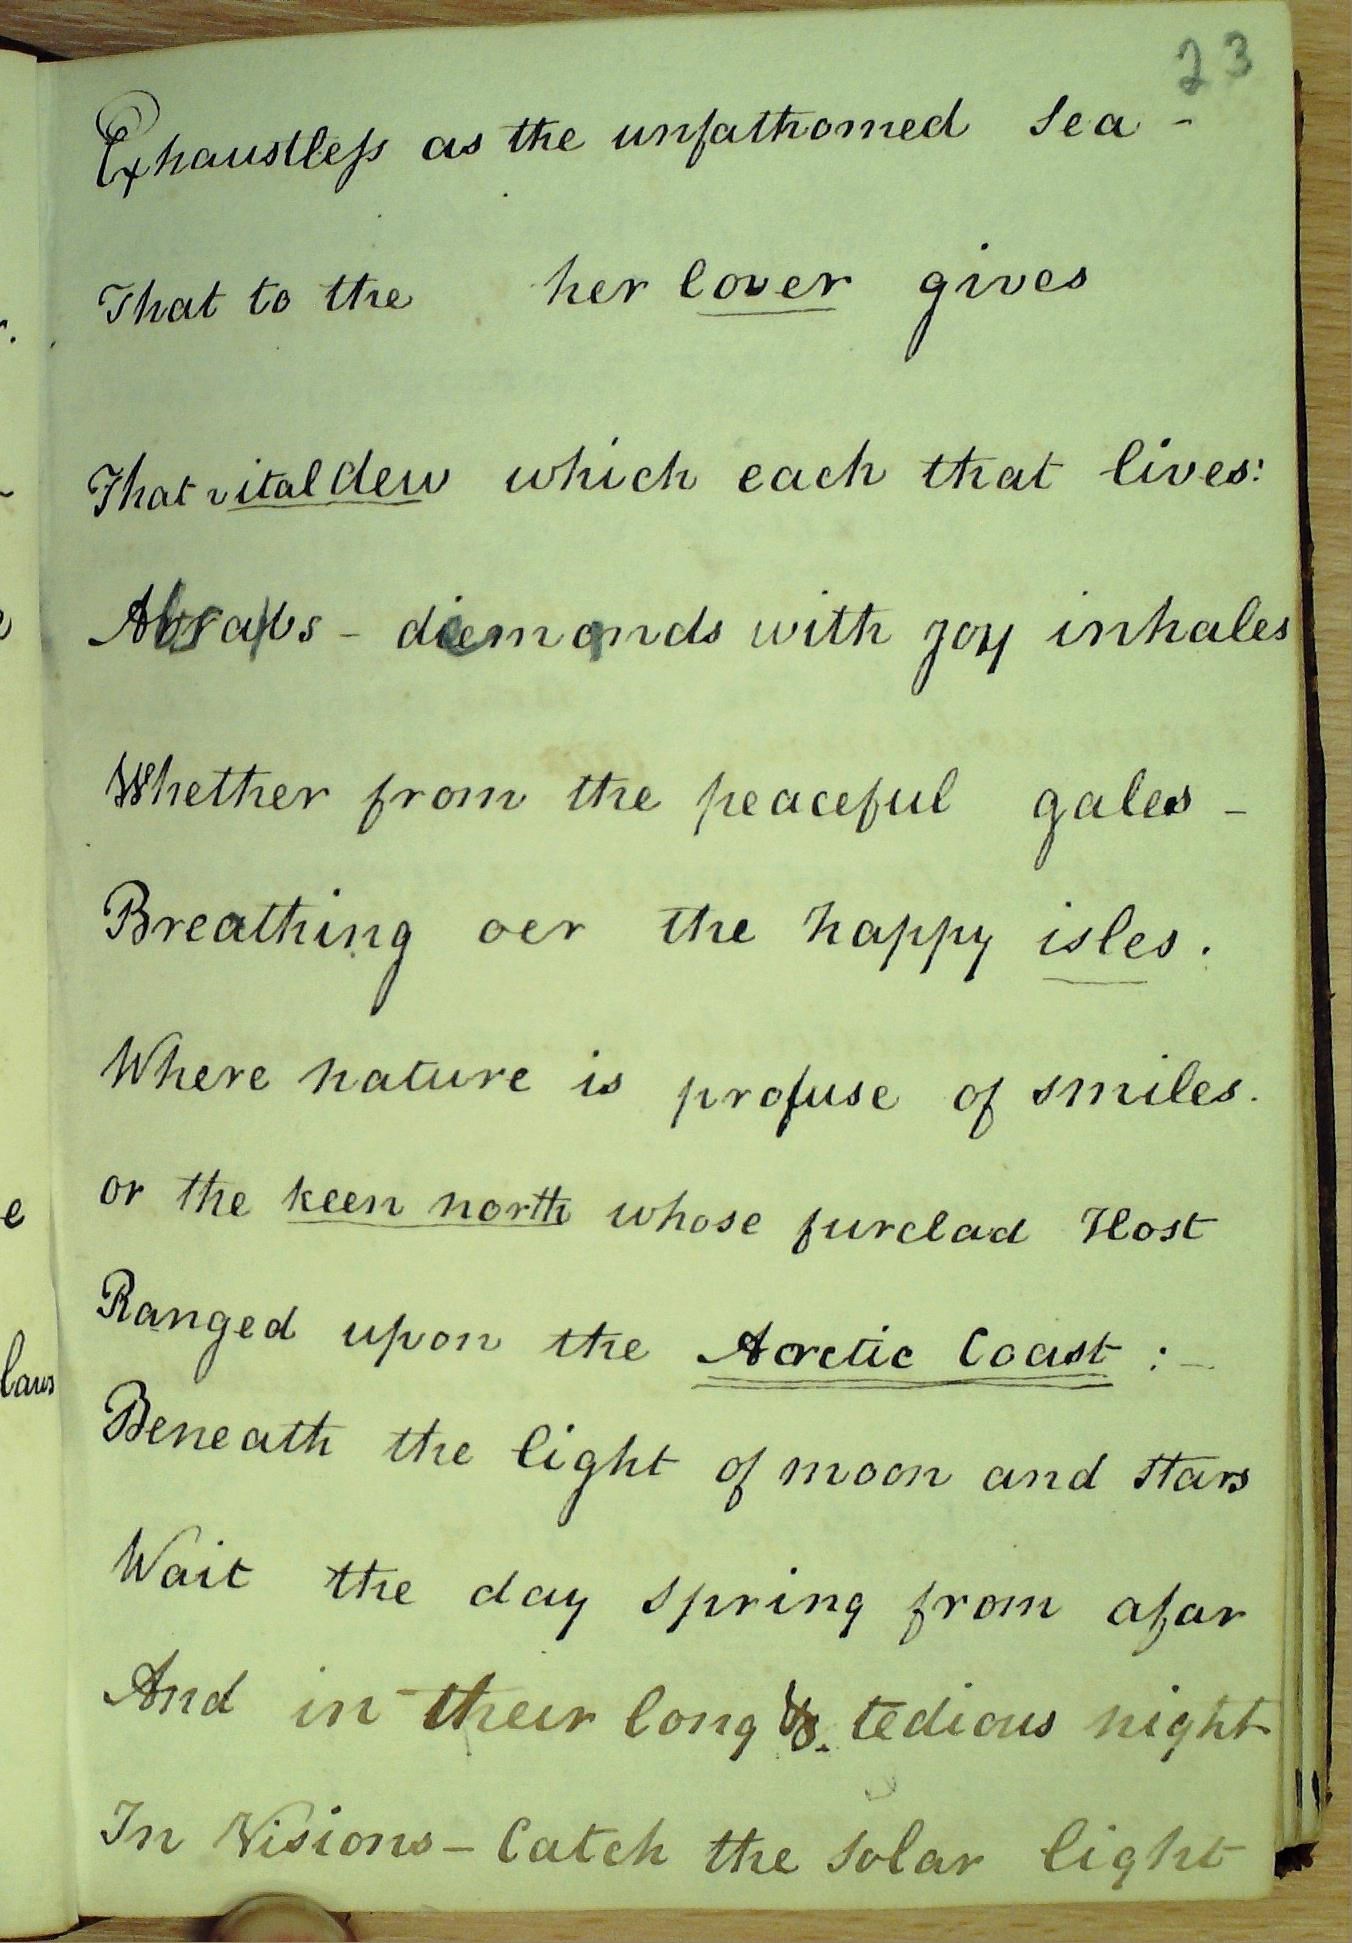 23
Exhaustless as the unfathomed Sea -
That to the her lover gives
That vital dew which each that lives:
- diemonds with joy inhales
Whether from the peaceful gales -
Breathing oer the happy isles.
Where nature is profuse of smiles.
or the keen north whose furclad Host
Ranged upon the Arctic Coast :-
Beneath the light of moon and stars
Wait the day spring from afar
And in their long & tedious night
In Visions - Catch the Solar light
laws